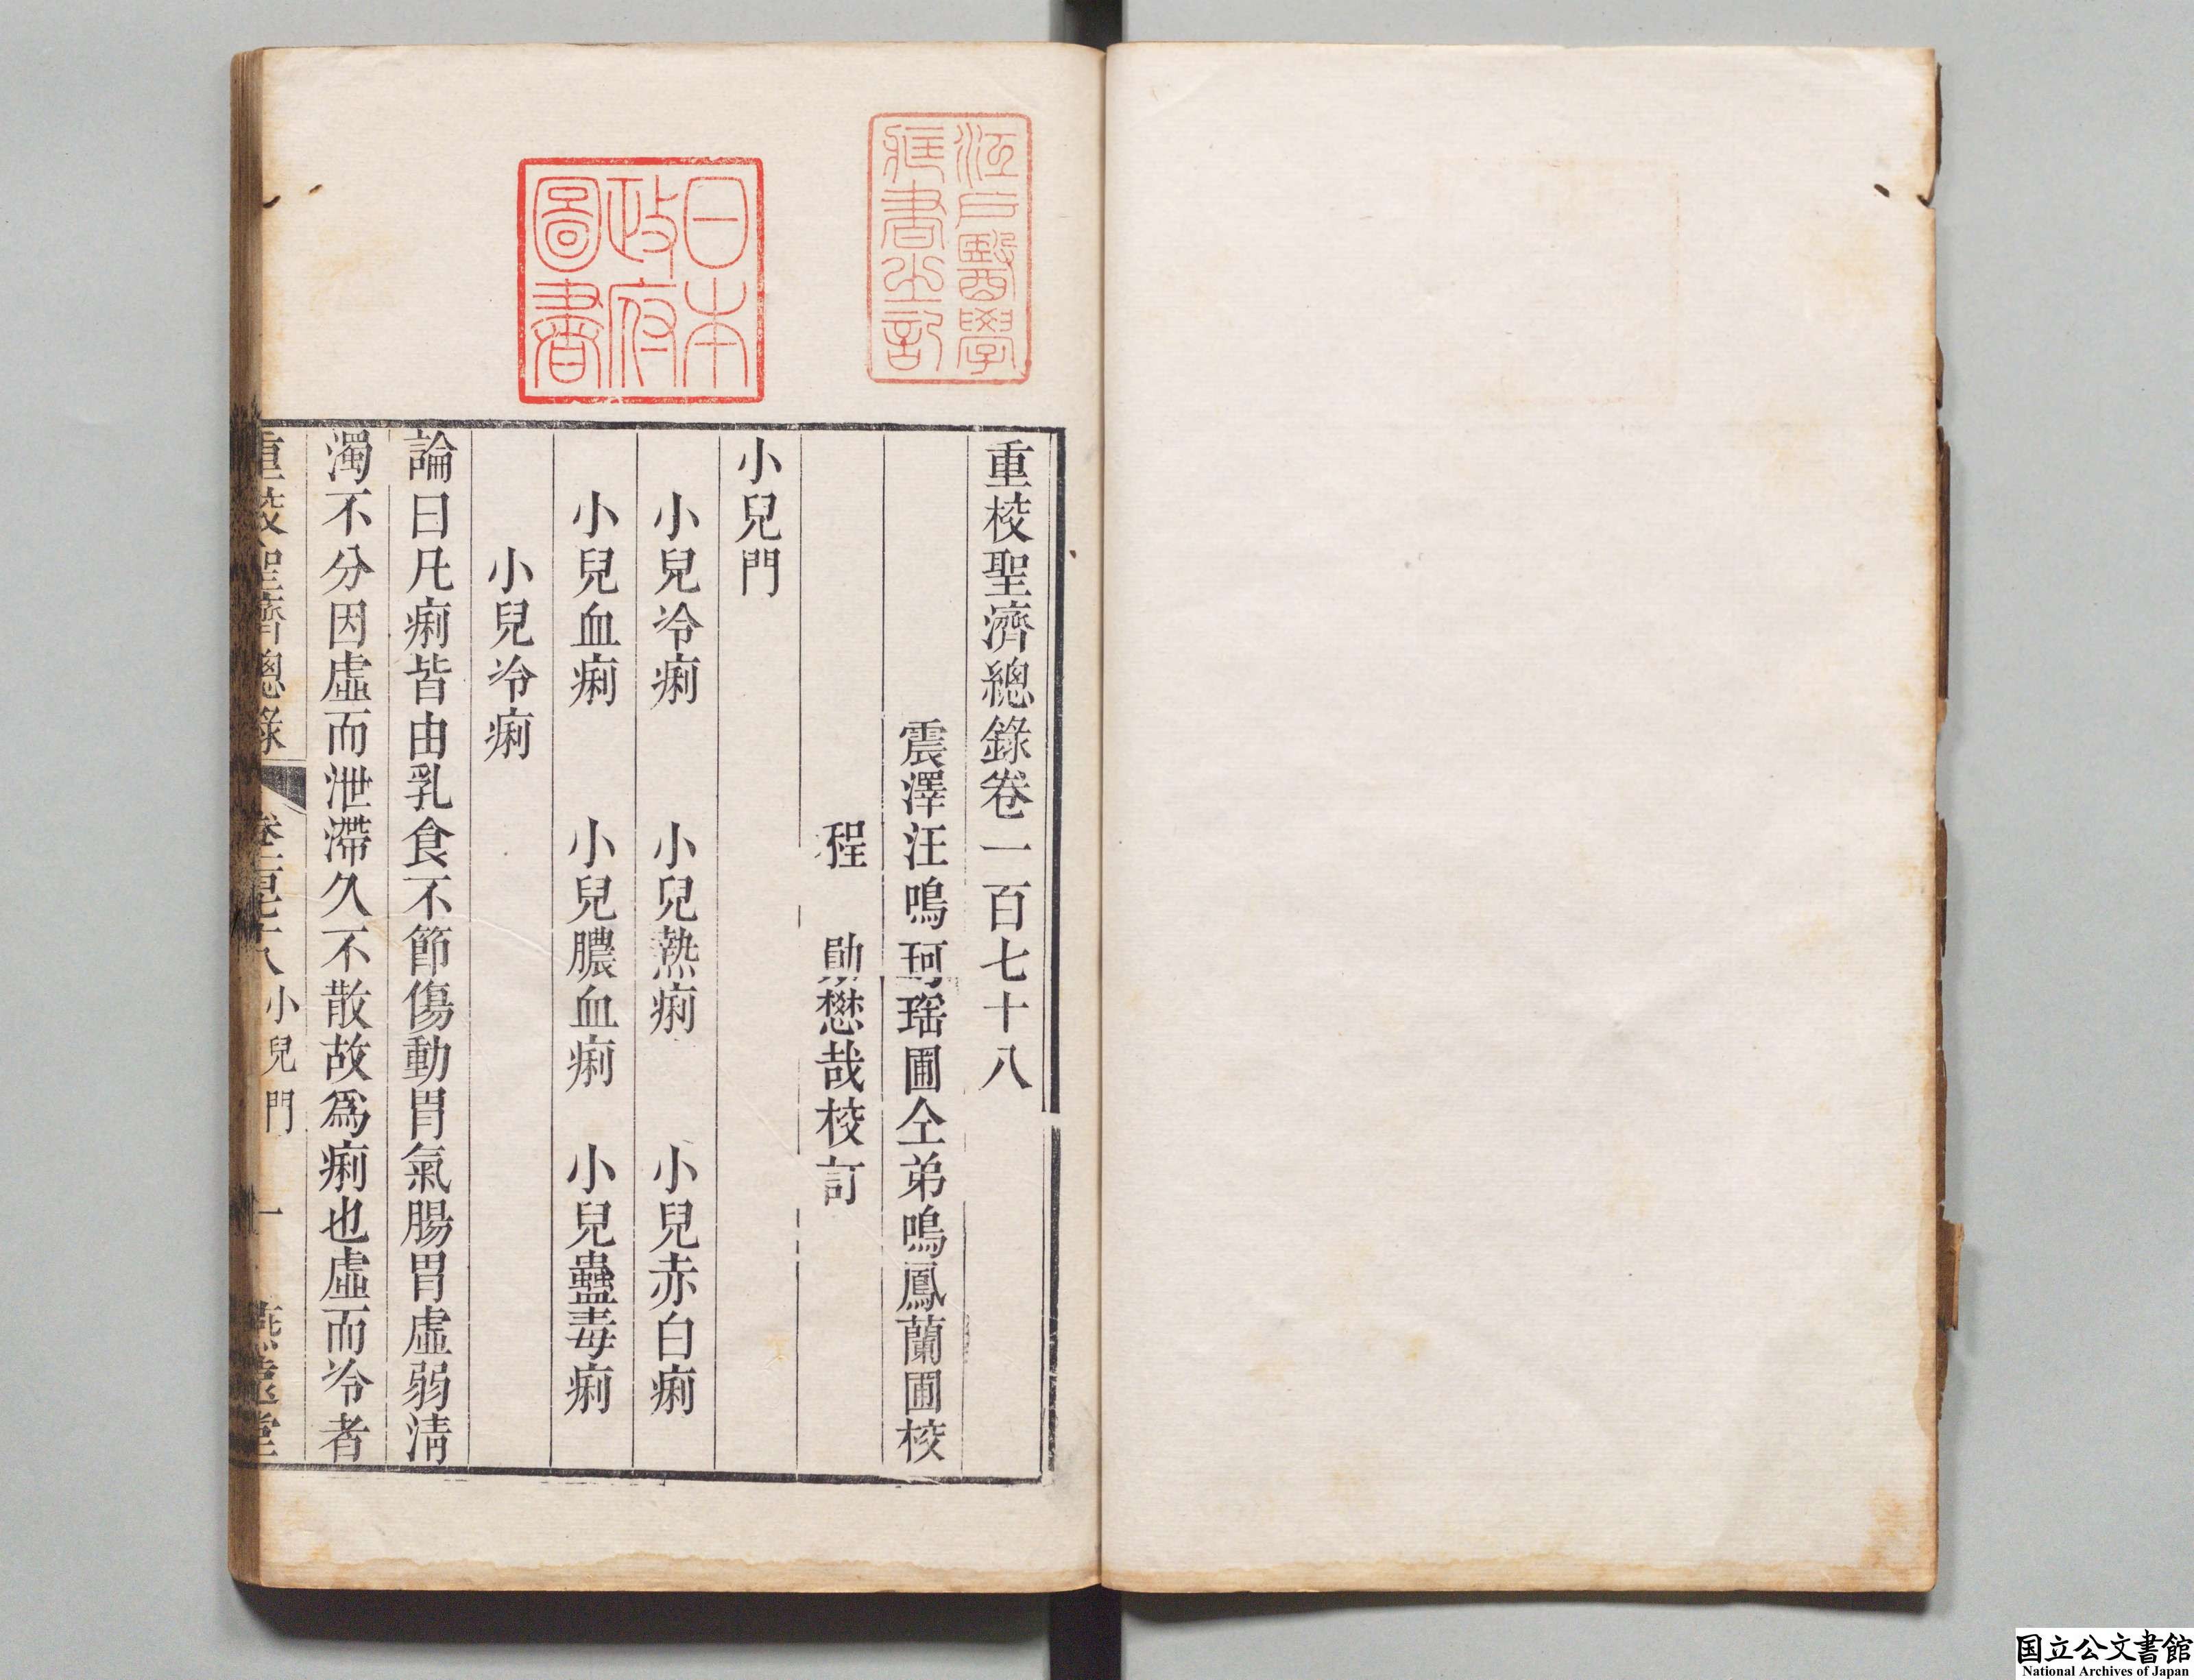 重校聖濟總錄卷一百七十八
震澤汪鳴珂瑶圃仝弟鳴鳳蘭圃校
程　勛懋哉校訂
小兒門
小兒冷痢　小兒熱痢　小兒赤白痢
小兒血痢　小兒膿血痢　小兒蠱毒痢
小兒冷痢
論曰凡痢皆由乳食不節傷動胃氣腸胃虛弱淸
濁不分因虛而泄滯久不散故爲痢也虛而冷者
重校聖濟總錄　卷一百七十八　小兒門　一　燕遠堂
江戶醫學
藏書之記
日本
政府
圖書
国立公文書館
National Archives of Japan